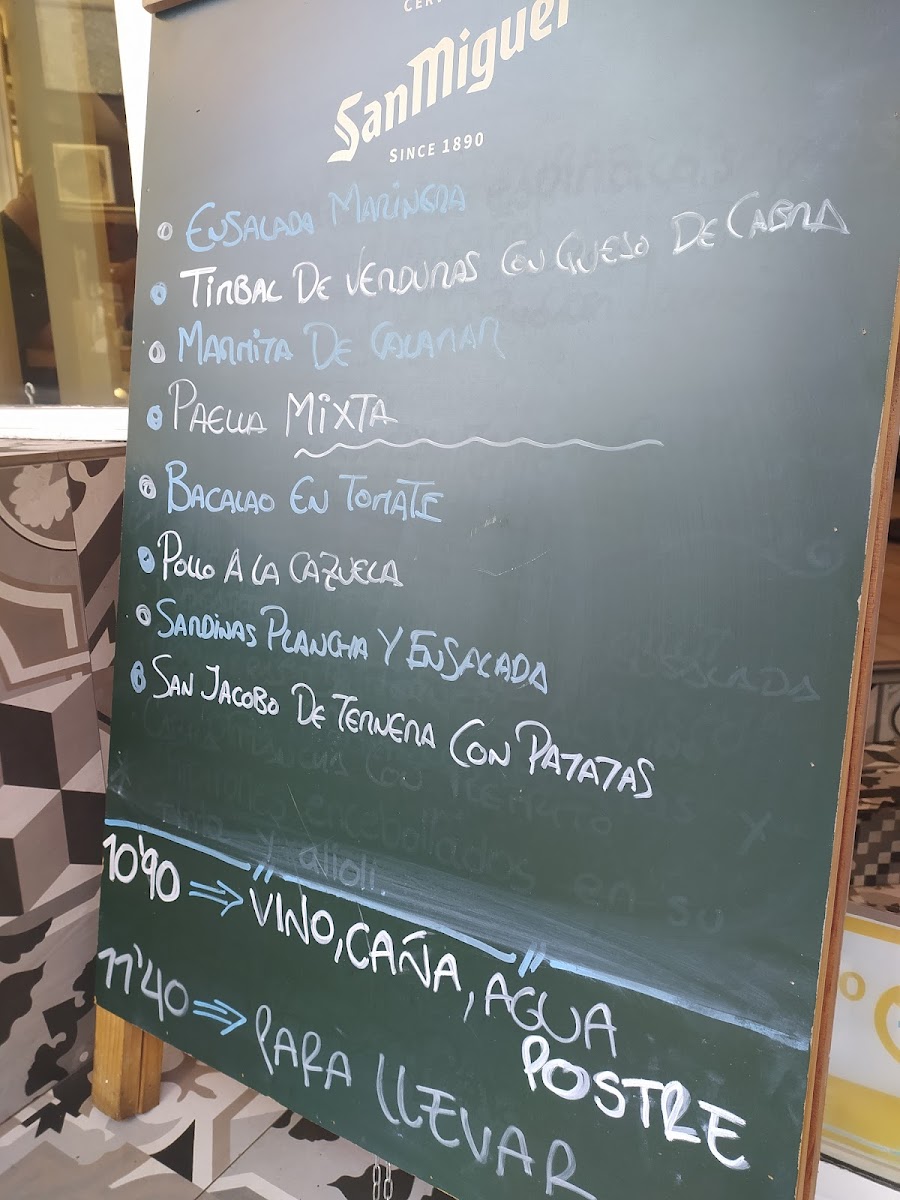 San Miguel
SINCE 1890
ENSALADA MARINERA
TIMBAL DE VERDURAS CON QUESO DE CABRA
MARMITA DE CALAMAR
PAELLA MIXTA
BACALAO EN TOMATE
POLLO A LA CAZUELA
SARDINAS PLANCHA Y ENSALADA
SAN JACOBO DE TERNERA CON PATATAS
10'90 ⇒ VINO, CAÑA, AGUA
POSTRE
11'40 ⇒ PARA LLEVAR